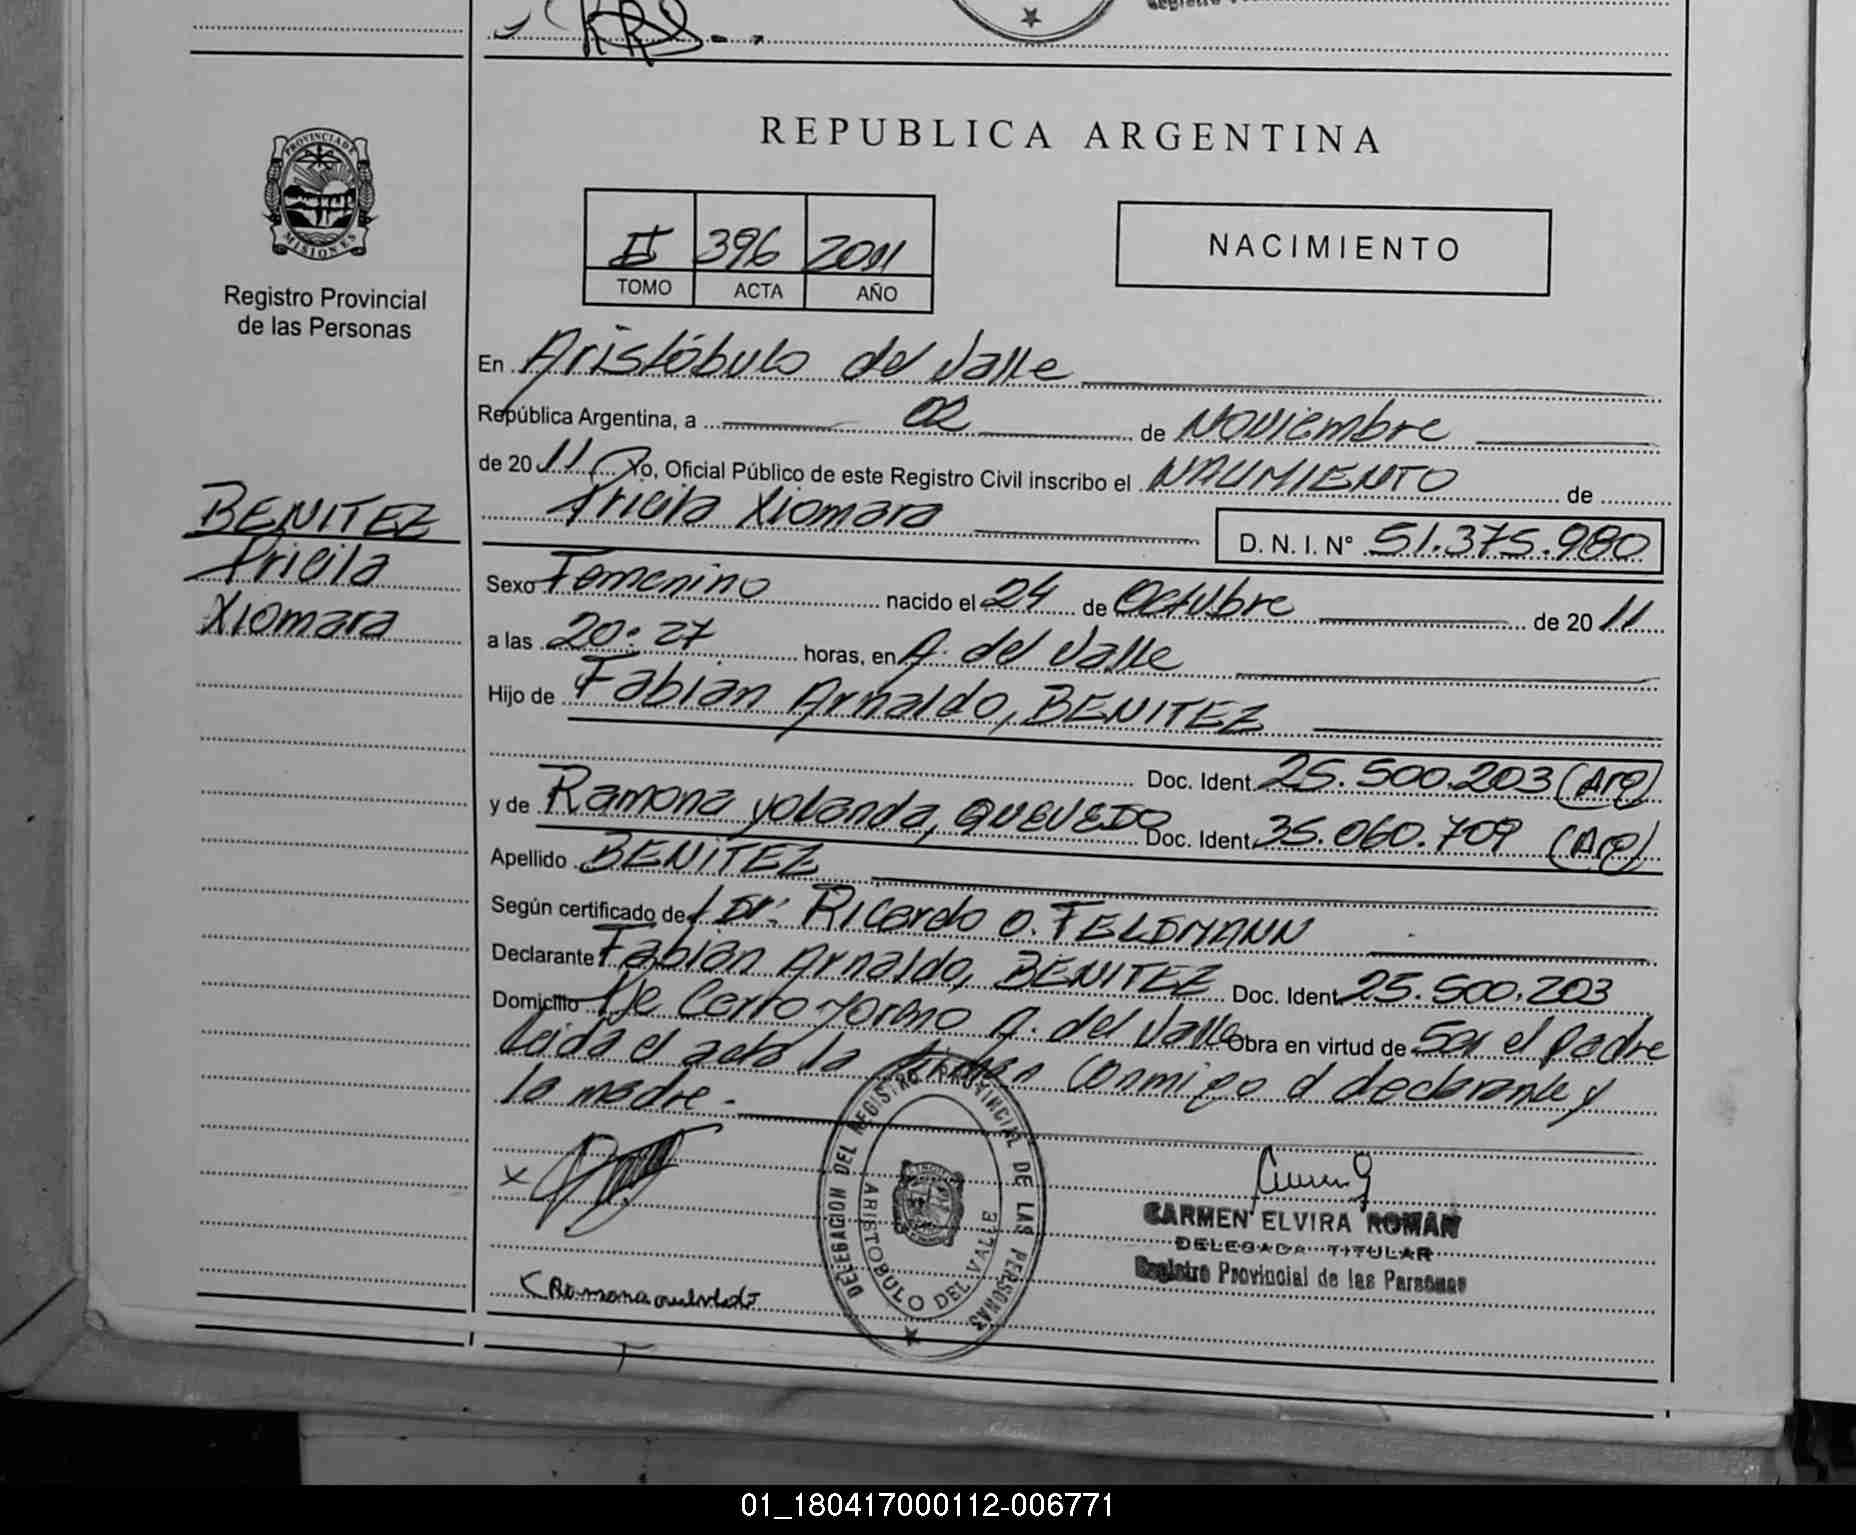 REPUBLICA ARGENTINA
PROVINCIA DE
MISIONES
Registro Provincial
de las Personas
II 396 2011
TOMO ACTA AÑO
NACIMIENTO
En Aristóbulo del Valle
República Argentina, a 02 de Noviembre
de 2011 Yo, Oficial Público de este Registro Civil inscribo el NACIMIENTO de
Pricila Xiomara D. N. I. N° 51.375.980
BENITEZ
Pricila
Xiomara
Sexo Femenino nacido el 24 de Octubre de 2011
a las 20:27 horas, en A. del Valle
Hijo de Fabian Arnaldo, BENITEZ
Doc. Ident. 25.500.203 (Arg)
y de Ramona yolanda, QUEVEDO Doc. Ident. 35.060.709 (Arg)
Apellido BENITEZ
Según certificado de Dr: Ricardo O. FELDMANN
Declarante Fabian Arnaldo, BENITEZ Doc. Ident. 25.500.203
Domicilio Cerro Moreno A. del Valle Obra en virtud de Ser el padre
Leida el acta la firman conmigo el declarante y
la madre.-
DELEGACION DEL REGISTRO PROVINCIAL DE LAS PERSONAS
ARISTOBULO DEL VALLE
CARMEN ELVIRA ROMAN
DELEGADA TITULAR
Registro Provincial de las Personas
Ramona
01_180417000112-006771